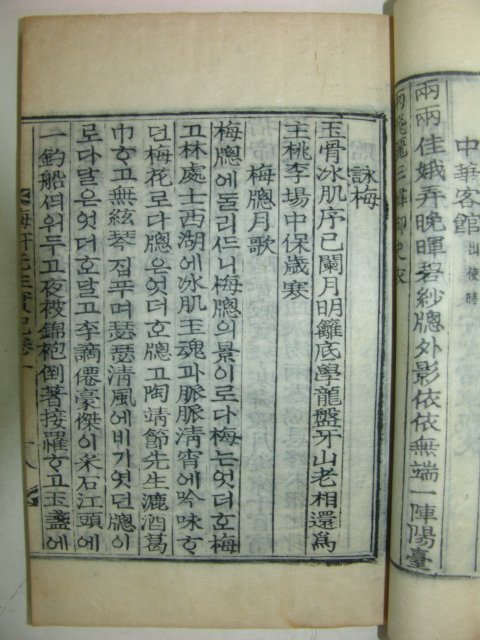 中華客館 出使時
兩兩佳娥弄晩暉碧紗牕外影依依無端一陣陽臺
詠梅
玉骨冰肌序已闌月明籬底學龍盤牙山老相還爲
主桃李場中保歲寒
梅牕月歌
梅牕에돌리드니梅牕의景이로다梅는엇더호梅
고林處士西湖에冰肌玉魂과脈脈淸宵에吟味ᄒᆞ
던梅花로다牕은엇더호牕고陶靖節先生漉酒葛
巾ᄒᆞ고無絃琴집푸며瑟瑟淸風에비기엿던牕이
로다달은엇더호달고李謫僊豪傑이采石江頭에
一釣船 두고夜被錦袍倒著接羅ᄒᆞ고玉盞에
梅軒先生實記卷一